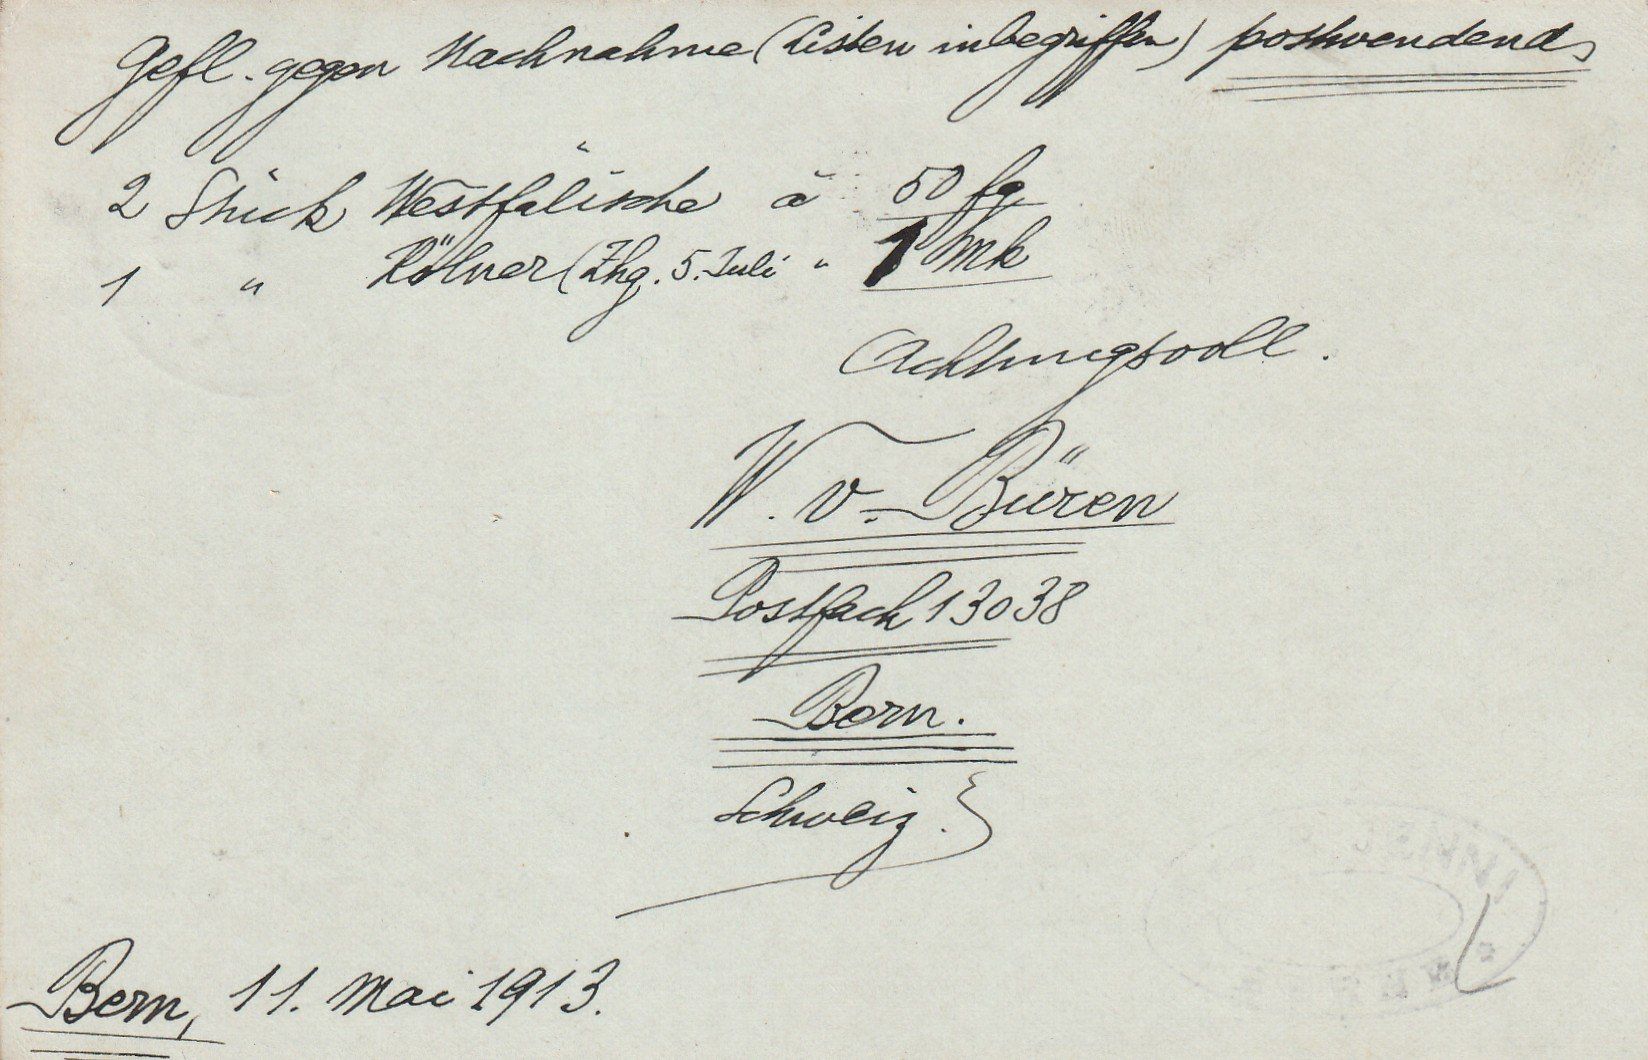 Gefl. gegen Nachnahme (Listen inbegriffen) postwendend
2 Stück Westfälische à 50 fg
1 " Kölner (Zhg. 5. Juli " 1 Mk
Achtungsvoll.
W. v. Büren
Postfach 13038
Bern.
Schweiz.
JENNI
Bern, 11. Mai 1913.